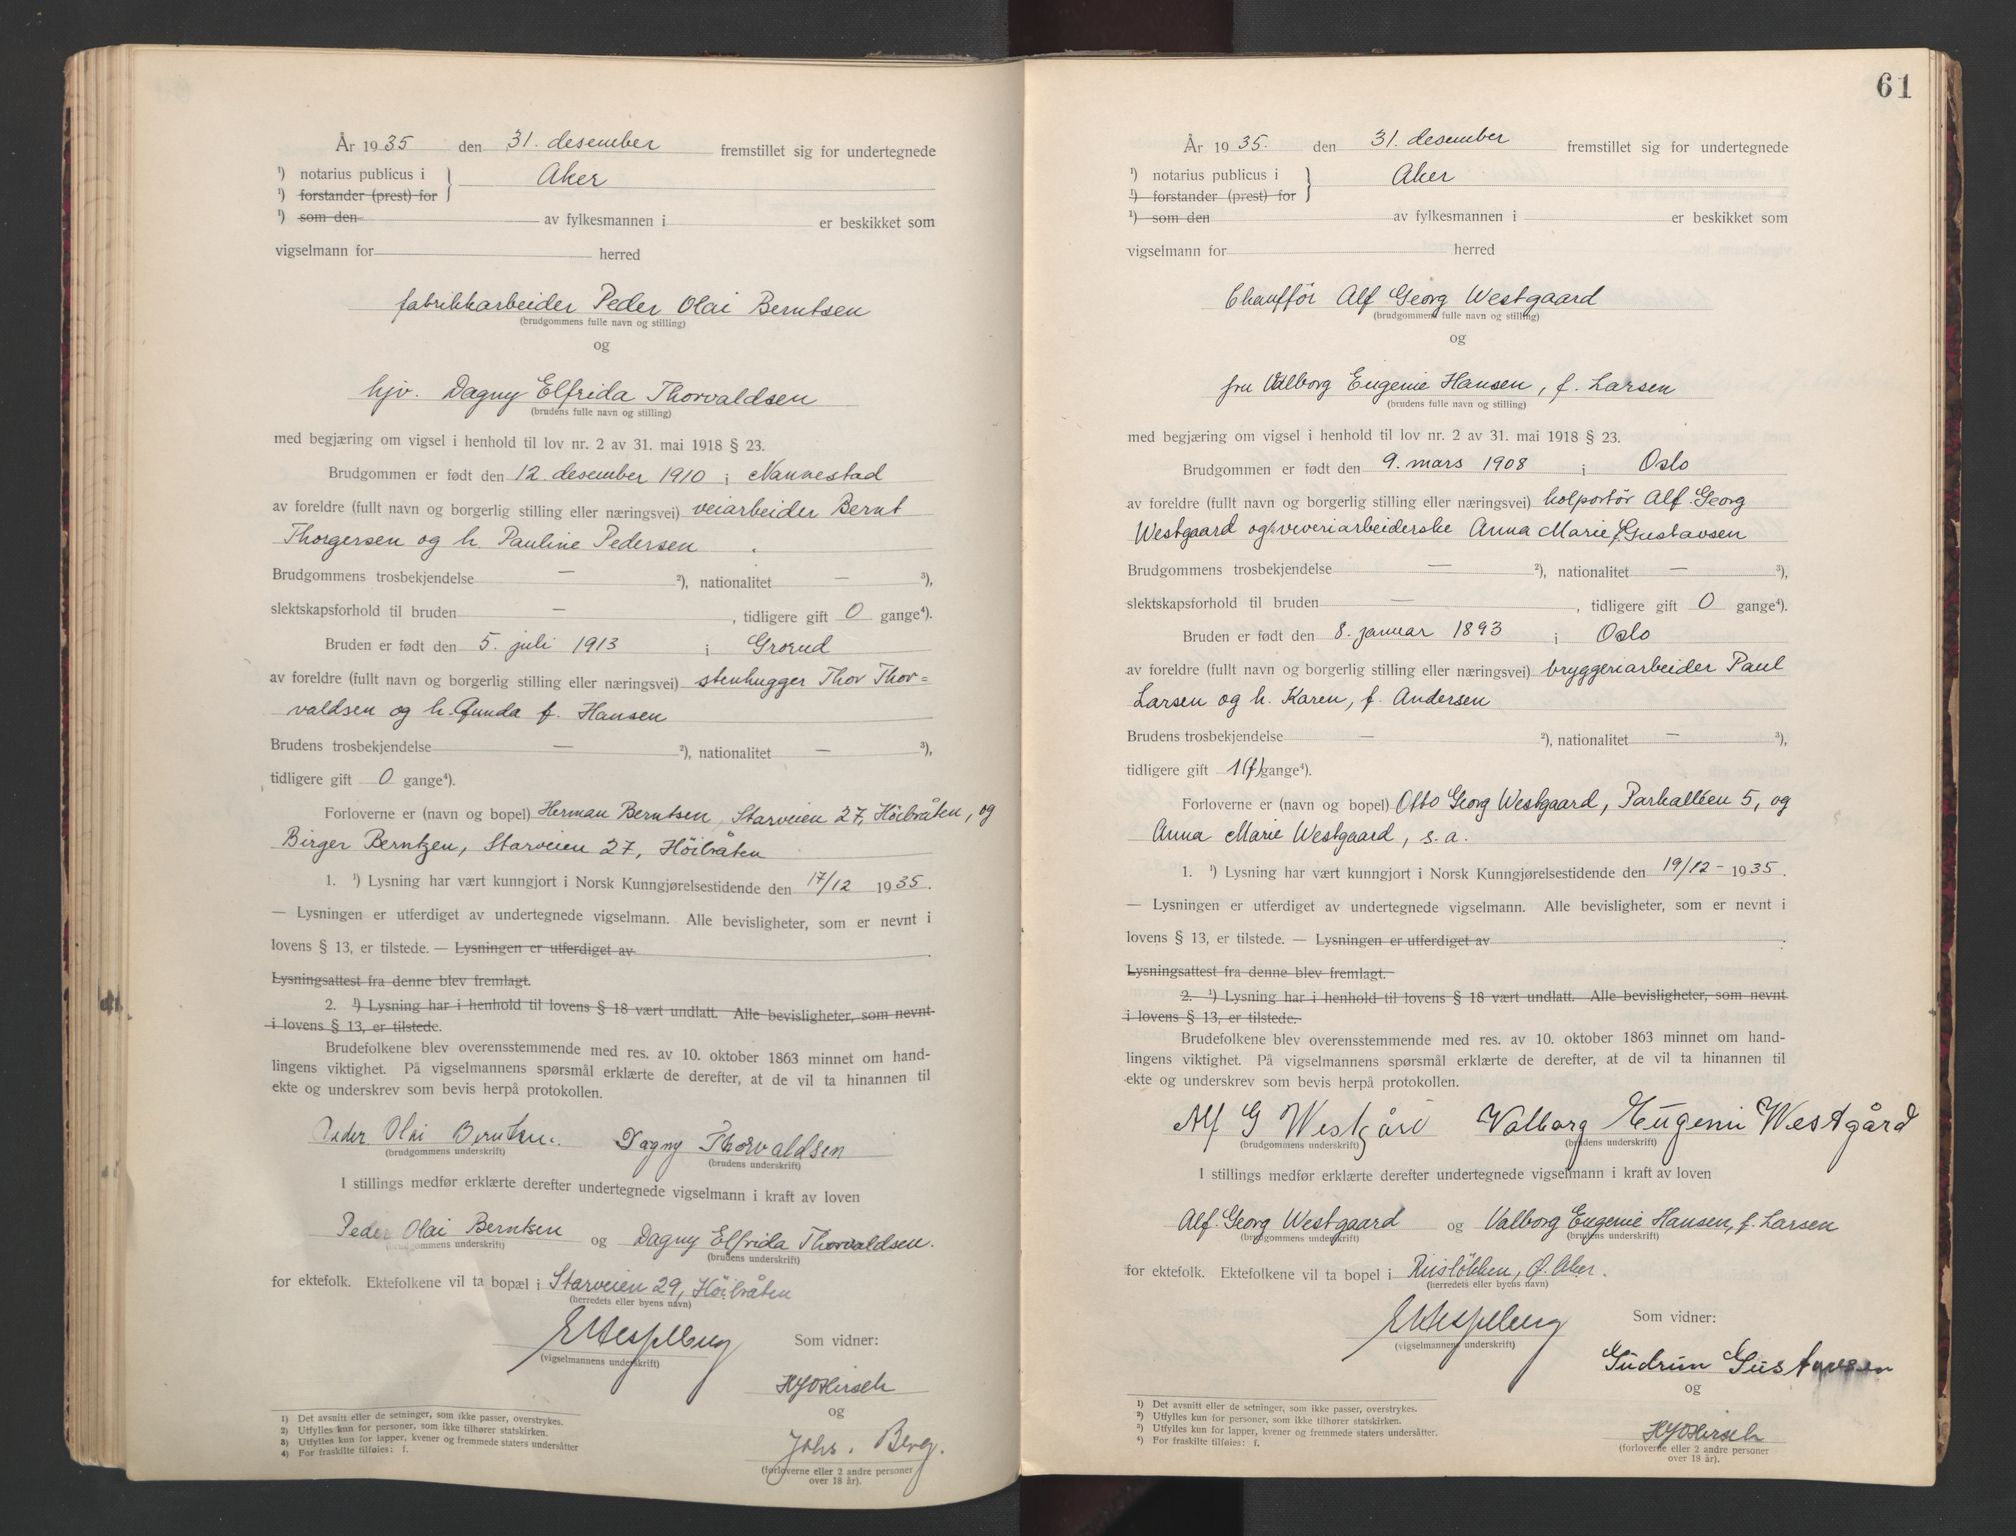 År 1935 den 31. desember fremstillet sig for undertegnede
¹) notarius publicus i } Aker
¹) forstander (prest) for
¹) som den av fylkesmannen i er beskikket som
vigselmann for herred
fabrikkarbeider Peder Olai Berntsen
(brudgommens fulle navn og stilling)
og
hjv. Dagny Elfrida Thorvaldsen
(brudens fulle navn og stilling)
med begjæring om vigsel i henhold til lov nr. 2 av 31. mai 1918 § 23.
Brudgommen er født den 12. desember 1910 i Nannestad
av foreldre (fullt navn og borgerlig stilling eller næringsvei) veiarbeider Bernt
Thorgersen og h. Pauline Pedersen
Brudgommens trosbekjendelse — ²), nationalitet — ³),
slektskapsforhold til bruden — , tidligere gift 0 gange⁴).
Bruden er født den 5. juli 1913 i Grorud
av foreldre (fullt navn og borgerlig stilling eller næringsvei) stenhugger Thor Thor=
valdsen og h. Gunda f. Hansen
Brudens trosbekjendelse — ²), nationalitet — ³),
tidligere gift 0 gange⁴).
Forloverne er (navn og bopel) Herman Berntsen, Starveien 27, Höibråten, og
Birger Berntzen, Starveien 27, Höibråten
1. ¹) Lysning har vært kunngjort i Norsk Kunngjørelsestidende den 17/12 1935.
— Lysningen er utferdiget av undertegnede vigselmann. Alle bevisligheter, som er nevnt i
lovens § 13, er tilstede. — Lysningen er utferdiget av .
Lysningsattest fra denne blev fremlagt.
2. ¹) Lysning har i henhold til lovens § 18 vært undlatt. Alle bevisligheter, som nevnt
i lovens § 13, er tilstede.
Brudefolkene blev overensstemmende med res. av 10. oktober 1863 minnet om hand-
lingens viktighet. På vigselmannens spørsmål erklærte de derefter, at de vil ta hinannen til
ekte og underskrev som bevis herpå protokollen.
Peder Olai Berntsen. Dagny Thorvaldsen
(brudgommens underskrift) (brudens underskrift)
I stillings medfør erklærte derefter undertegnede vigselmann i kraft av loven
Peder Olai Berntsen og Dagny Elfrida Thorvaldsen.
(brudgommens underskrift) (brudens underskrift)
for ektefolk. Ektefolkene vil ta bopæl i Starveien 29, Höibråten
(herredets eller byens navn)
Som vidner:
(vigselmannens underskrift)
HJHirsch
og
Johs. Berg.
(forloverne eller 2 andre personer
over 18 år).
1) Det avsnitt eller de setninger, som ikke passer, overstrykes.
2) Utfylles kun for personer, som ikke tilhører statskirken.
3) Utfylles kun for lapper, kvener og fremmede staters undersåtter
4) For fraskilte tilføies: f.
61
År 1935. den 31. desember fremstillet sig for undertegnede
¹) notarius publicus i } Aker
¹) forstander (prest) for
¹) som den av fylkesmannen i er beskikket som
vigselmann for herred
Chaufför Alf Georg Westgaard
(brudgommens fulle navn og stilling)
og
fru Valborg Eugenie Hansen, f. Larsen
(brudens fulle navn og stilling)
med begjæring om vigsel i henhold til lov nr. 2 av 31. mai 1918 § 23.
Brudgommen er født den 9. mars 1908 i Oslo
av foreldre (fullt navn og borgerlig stilling eller næringsvei) kolportör Alf Georg
Westgaard og veveriarbeiderske Anna Marie f. Gustavsen
Brudgommens trosbekjendelse — ²), nationalitet — ³),
slektskapsforhold til bruden — , tidligere gift 0 gange⁴).
Bruden er født den 8. januar 1893 i Oslo
av foreldre (fullt navn og borgerlig stilling eller næringsvei) bryggeriarbeider Paul
Larsen og h. Karen, f. Andersen
Brudens trosbekjendelse — ²), nationalitet — ³),
tidligere gift 1(f) gange⁴).
Forloverne er (navn og bopel) Otto Georg Westgaard, Parkalléen 5, og
Anna Marie Westgaard, s.a.
1. ¹) Lysning har vært kunngjort i Norsk Kunngjørelsestidende den 19/12 - 1935.
— Lysningen er utferdiget av undertegnede vigselmann. Alle bevisligheter, som er nevnt i
lovens § 13, er tilstede. — Lysningen er utferdiget av .
Lysningsattest fra denne blev fremlagt.
2. ¹) Lysning har i henhold til lovens § 18 vært undlatt. Alle bevisligheter, som nevnt
i lovens § 13, er tilstede.
Brudefolkene blev overensstemmende med res. av 10. oktober 1863 minnet om hand-
lingens viktighet. På vigselmannens spørsmål erklærte de derefter, at de vil ta hinannen til
ekte og underskrev som bevis herpå protokollen.
Alf G Westgård Valborg Eugenie Westgård
(brudgommens underskrift) (brudens underskrift)
I stillings medfør erklærte derefter undertegnede vigselmann i kraft av loven
Alf Georg Westgaard og Valborg Eugenie Hansen, f. Larsen
(brudgommens underskrift) (brudens underskrift)
for ektefolk. Ektefolkene vil ta bopel i Riisløkken, Ø. Aker.
(herredets eller byens navn)
Som vidner:
(vigselmannens underskrift)
Gudrun Gustavsen
og
HJHirsch
(forloverne eller 2 andre personer
over 18 år).
¹) Det avsnitt eller de setninger, som ikke passer, overstrykes.
²) Utfylles kun for personer, som ikke tilhører statskirken.
³) Utfylles kun for lapper, kvener og fremmede staters undersåtter.
⁴) For fraskilte tilføies: f.